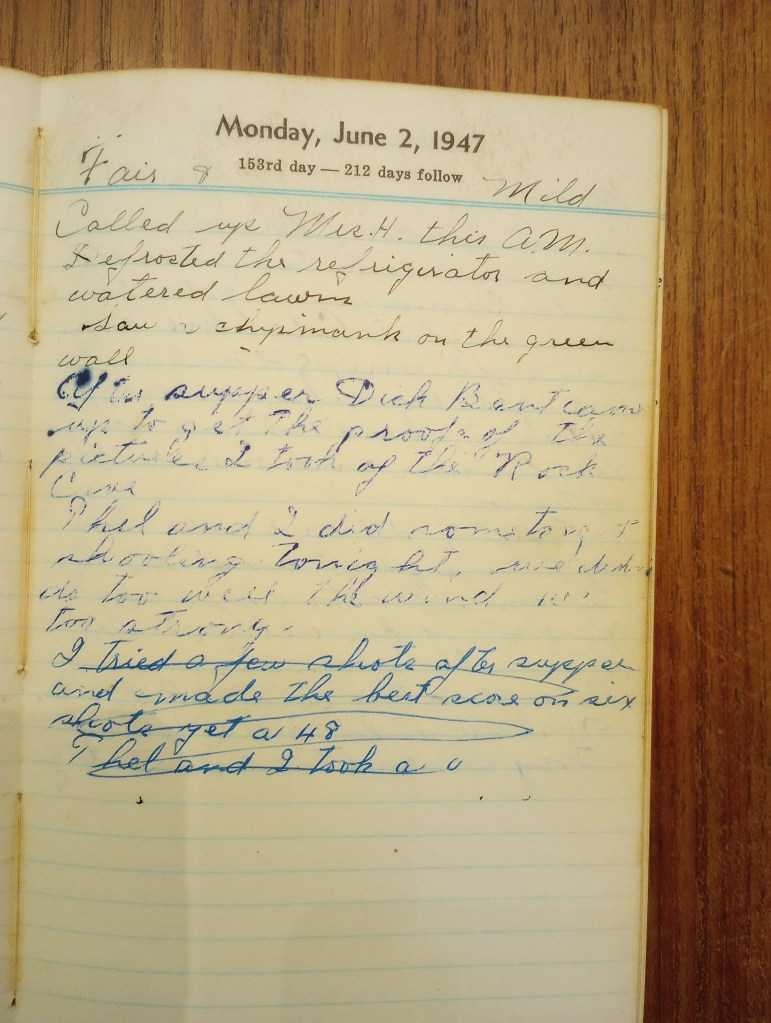 Monday, June 2, 1947
153rd day — 212 days follow
Fair & Mild
Called up Mrs. H. this A.M.
Defrosted the refrigirator and
watered lawns
Saw a chipmank on the green
wall
After supper Dick Bent came
up to get the proofs of the
pictures I took of the "Rock
Cave
Thel and I did some target
shooting tonight, we didn't
do too well the wind
too strong.
I tried a few shots after supper
and made the best score on six
shots yet a 48
Thel and I took a